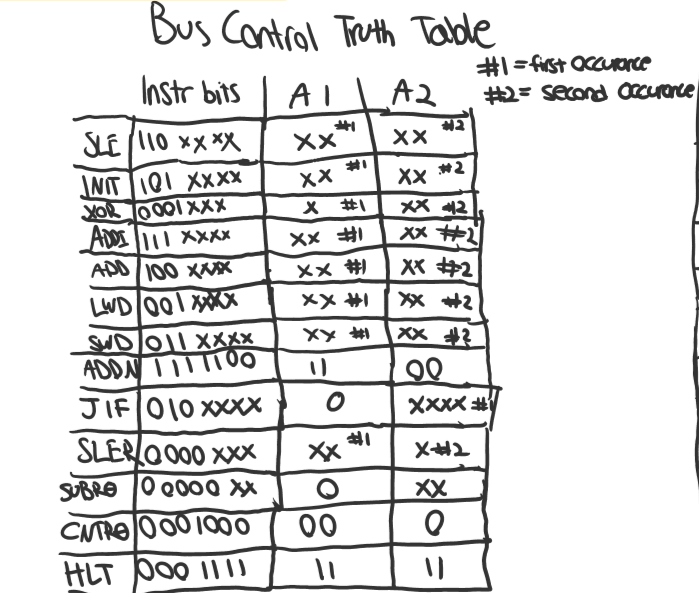 Bus Control Truth Table
#1 = first occurance
#2 = second occurance
Instr bits A1 A2
SLE 110 xxxx xx #1 xx #2
INIT 101 xxxx xx #1 xx #2
XOR 0001xxx x #1 xx #2
ADDI 111 xxxx xx #1 xx #2
ADD 100 xxxx xx #1 xx #2
LWD 001 xxxx xx #1 xx #2
SWD 011 xxxx xx #1 xx #2
ADDN 1111100 11 00
JIF 010 xxxx 0 xxxx #1
SLER 0000 xxx xx #1 x #2
SUBR0 00000 xx 0 xx
CNTR0 0001000 00 0
HLT 000 1111 11 11